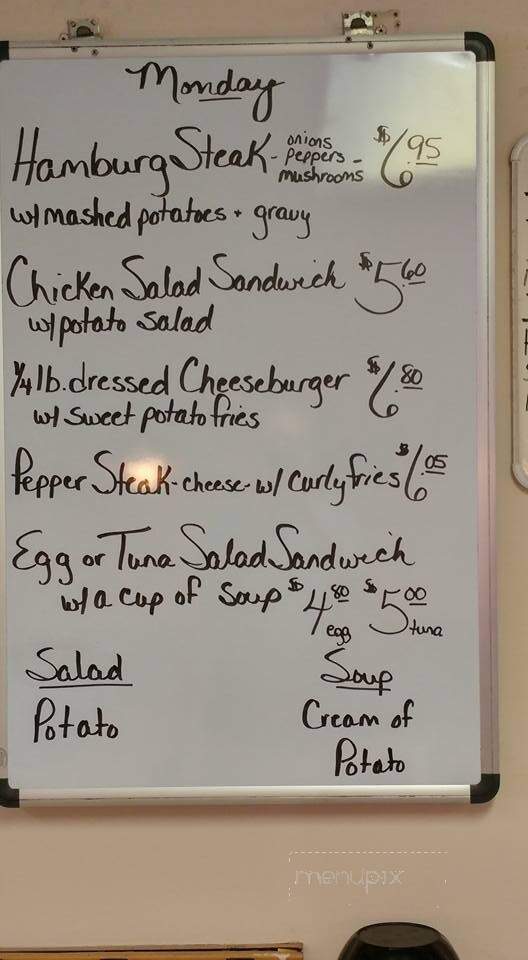 Monday
Hamburg Steak - onions peppers - mushrooms $6.95
w/ mashed potatoes + gravy
Chicken Salad Sandwich $5.60
w/ potato salad
1/4 lb. dressed Cheeseburger $6.80
w/ sweet potato fries
Pepper Steak - cheese - w/ curly fries $6.05
Egg or Tuna Salad Sandwich
w/ a cup of soup $4.80 egg $5.00 tuna
Salad Soup
Potato Cream of
Potato
menupix